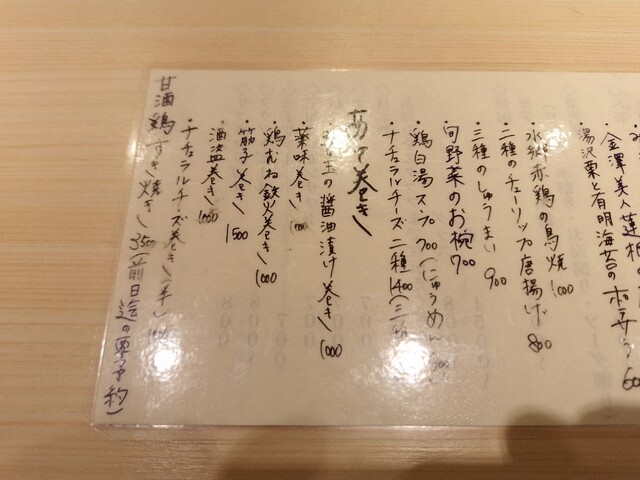 金澤美人蓮根
湯沢栗と有明海苔のポテサラ 600
水郷赤鶏の鳥焼 1000
・二種のチューリップ唐揚げ 800
・三種のしゅうまい 900
・旬野菜のお椀 700
・鶏白湯スープ 700 (にゅうめん
・ナチュラルチーズ二種 1400 (三種
あて巻き
玉の醤油漬け巻き 1000
・薬味巻き
・鶏むね鉄火巻き 1000
・筋子巻き 1500
・酒盗巻き 1000
・ナチュラルチーズ巻き
甘酒鶏すき焼き 3500 (前日迄の要予約)